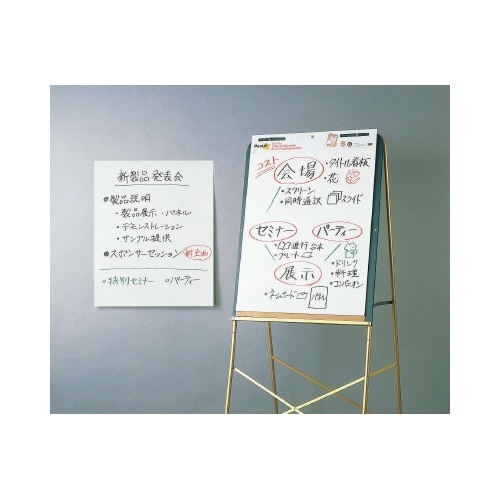 新製品発表会
●製品説明
・製品展示・パネル
・デモンストレーション
・サンプル提供
●スポンサーセッション 新企画
○特別セミナー ○パーティー
Post-it
コスト
会場
・タイトル看板
・花
・スクリーン
・同時通訳
スライド
セミナー
パーティー
・進行台本
・ドリンク
・料理
・コンパニオン
展示
パネル